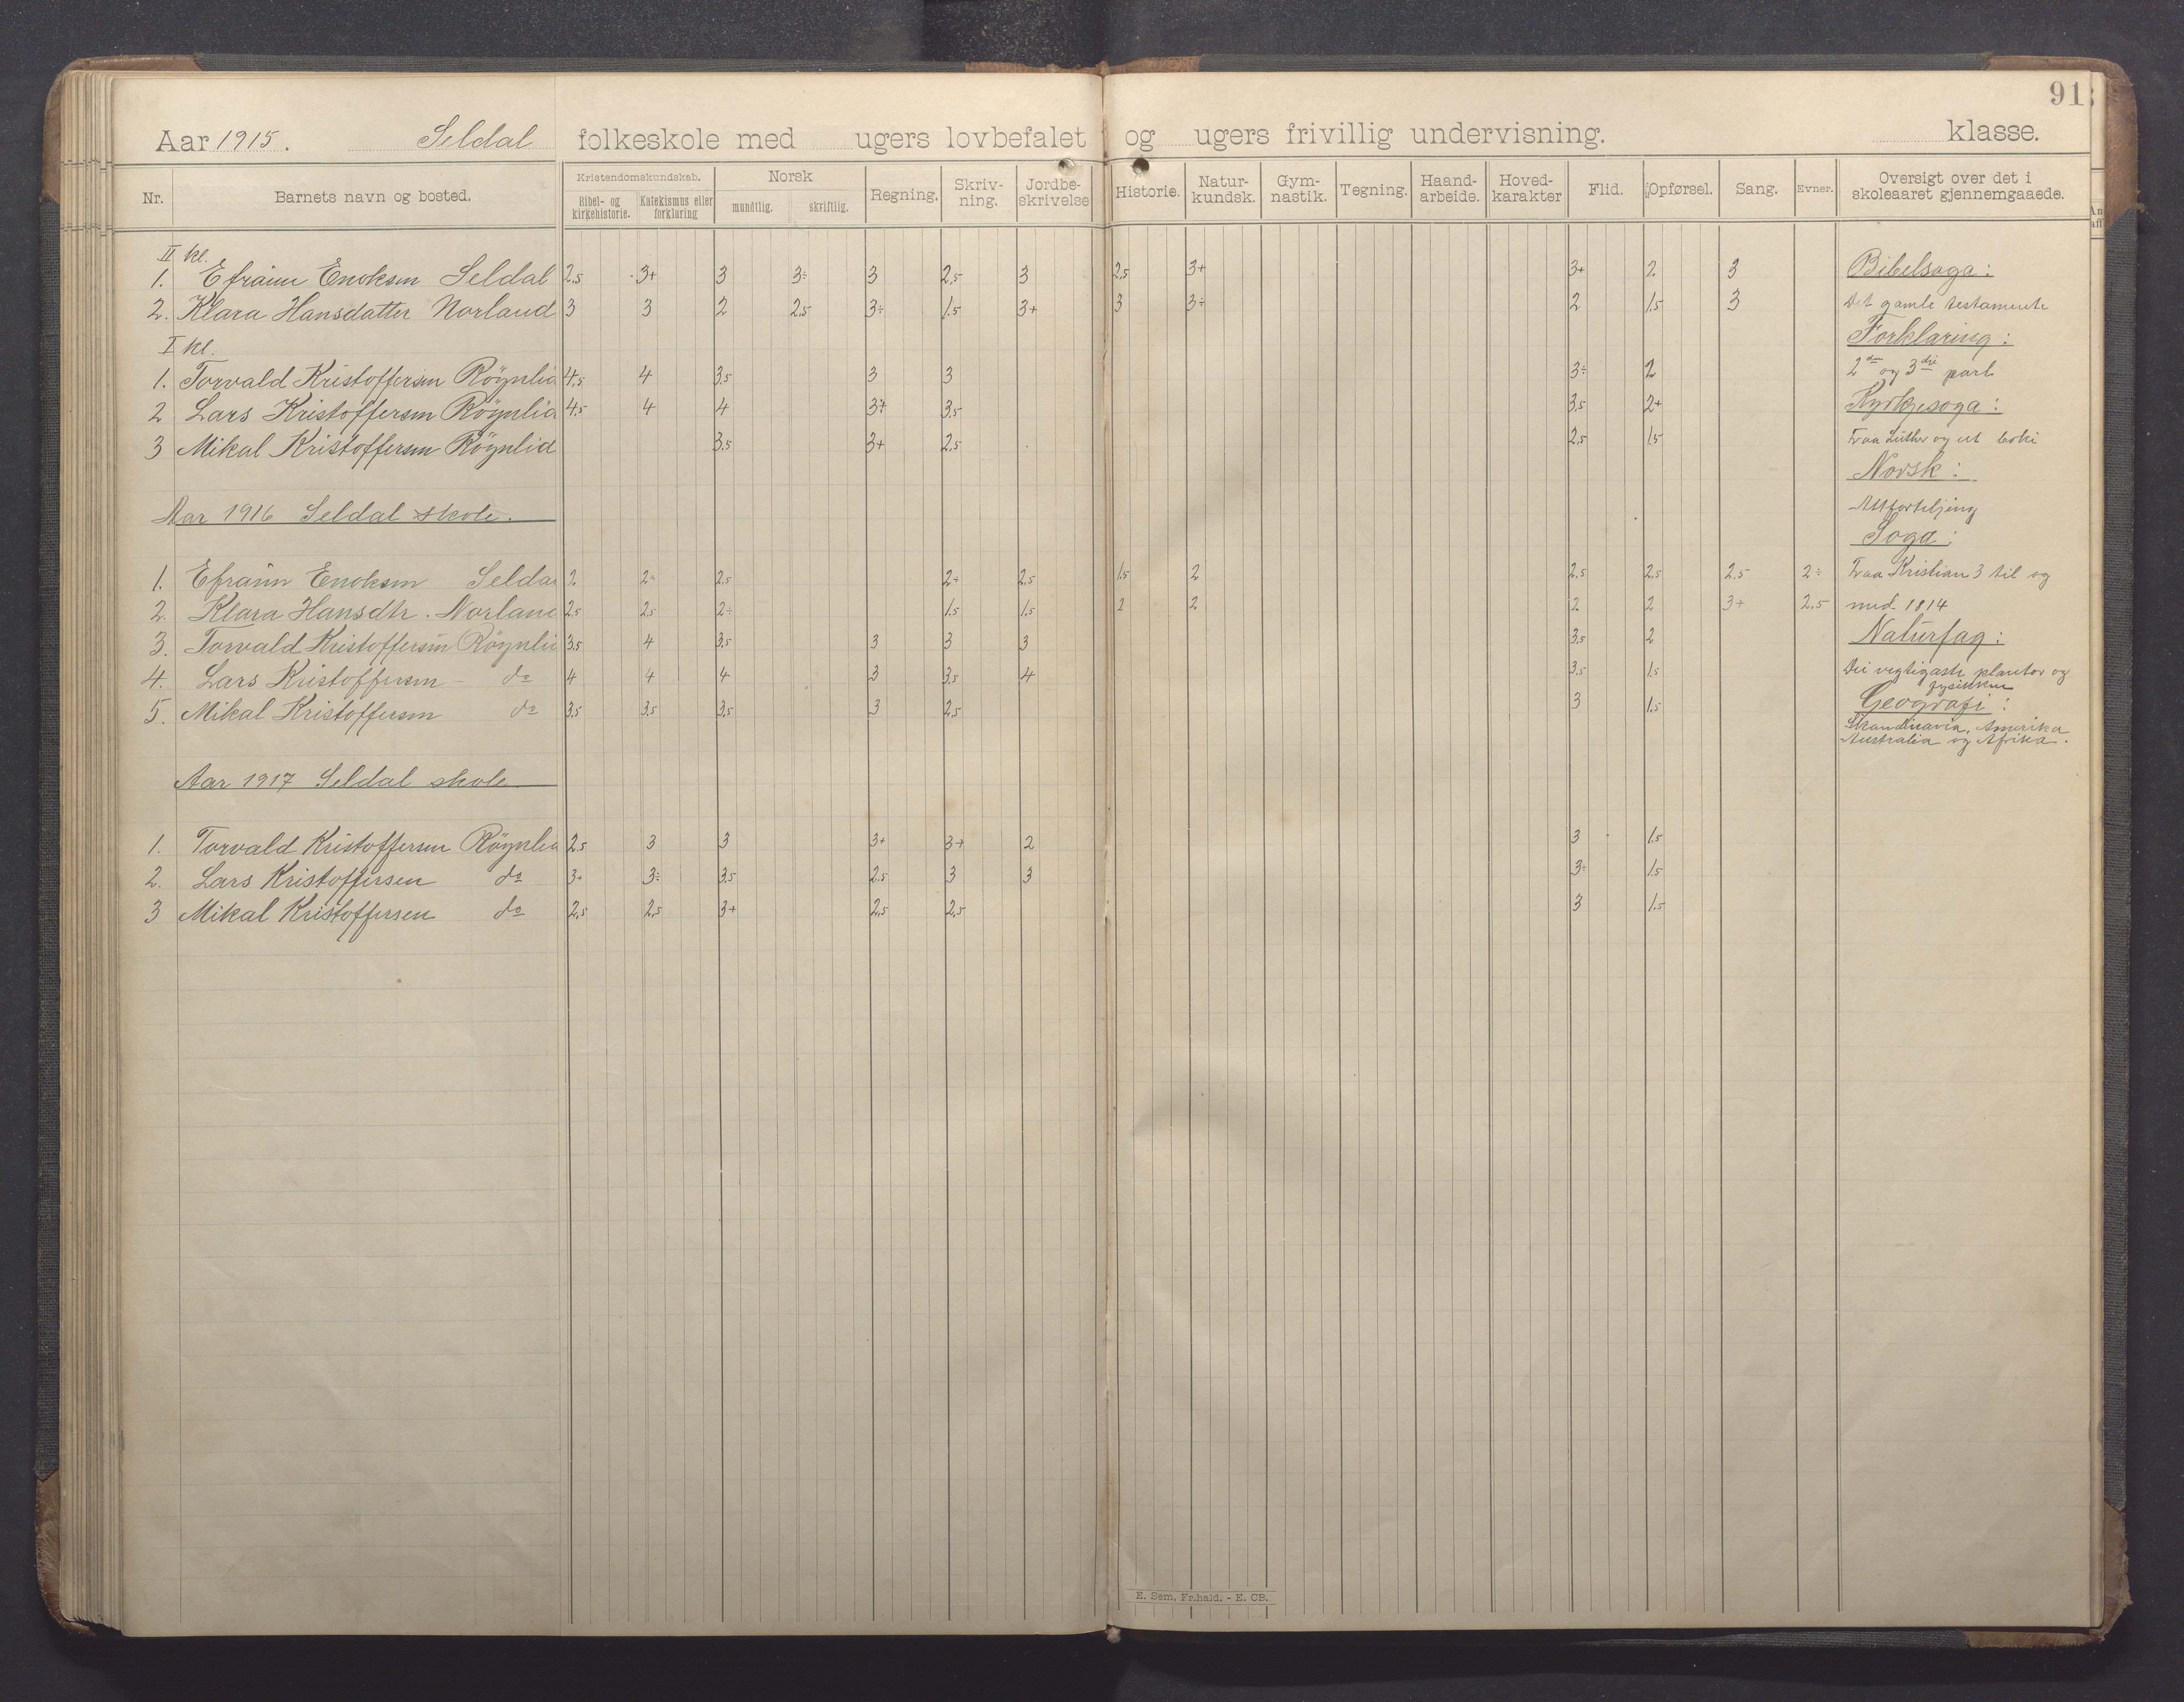 91
Aar 1915. Seldal folkeskole med ugers lovbefalet og ugers frivillig undervisning. klasse.
Nr. Barnets navn og bosted. Kristendomskundskab. Bibel- og kirkehistorie. Katekismus eller forklaring Norsk mundtlig. skriftlig. Regning. Skriv-ning. Jordbe-skrivelse Historie. Natur-kundsk. Gym-nastik. Tegning. Haand-arbeide. Hoved-karakter Flid. Opførsel. Sang. Evner. Oversigt over det i skoleaaret gjennemgaaede.
II kl.
1. Efraim Enoksen Seldal 2,5 3+ 3 3÷ 3 2,5 3 2,5 3+ 3+ 2 3 Bibelsoga:
2. Klara Hansdatter Norland 3 3 2 2,5 3÷ 1,5 3+ 3 3÷ 2 1,5 3 Det gamle testamente
I kl. Forklaring:
1. Torvald Kristoffersen Röynlid 4,5 4 3,5 3 3 3÷ 2 2den og 3dje part
2 Lars Kristoffersen Röynlid 4,5 4 4 3,5 3,5 2+ Kyrkjesoga:
3 Mikal Kristoffersen Röynlid 3,5 3+ 2,5 2,5 1,5 Fraa Luther og ut boki
Norsk:
Aar 1916 Seldal skole. Attforteljing
Soga:
1. Efraim Enoksen Seldal 2 2÷ 2,5 2÷ 2,5 1,5 2 2,5 2,5 2,5 2÷ Fraa Kristian 3 til og
2. Klara Hansdtr. Norland 2,5 2,5 2÷ 1,5 1,5 2 2 2 2 3+ 2,5 med 1814
3. Torvald Kristoffersen Röynlid 3,5 4 3,5 3 3 3 3,5 2 Naturfag:
4. Lars Kristoffersen - do 4 4 4 3 3,5 4 3,5 1,5 Dei vegtigaste plantor og
fysikken
5. Mikal Kristoffersen do 3,5 3,5 3,5 3 2,5 3 1,5 Geografi:
Skandinavia, Amerika
Australia og Afrika.
Aar 1917 Seldal skole
1. Torvald Kristoffersen Röynlid 2,5 3 3 3+ 3+ 2 3 1,5
2. Lars Kristoffersen do 3+ 3÷ 3,5 2,5 3 3 3÷ 1,5
3 Mikal Kristoffersen do 2,5 2,5 3+ 2,5 2,5 3 1,5
E. Sem, Fr.hald. - E. CB.